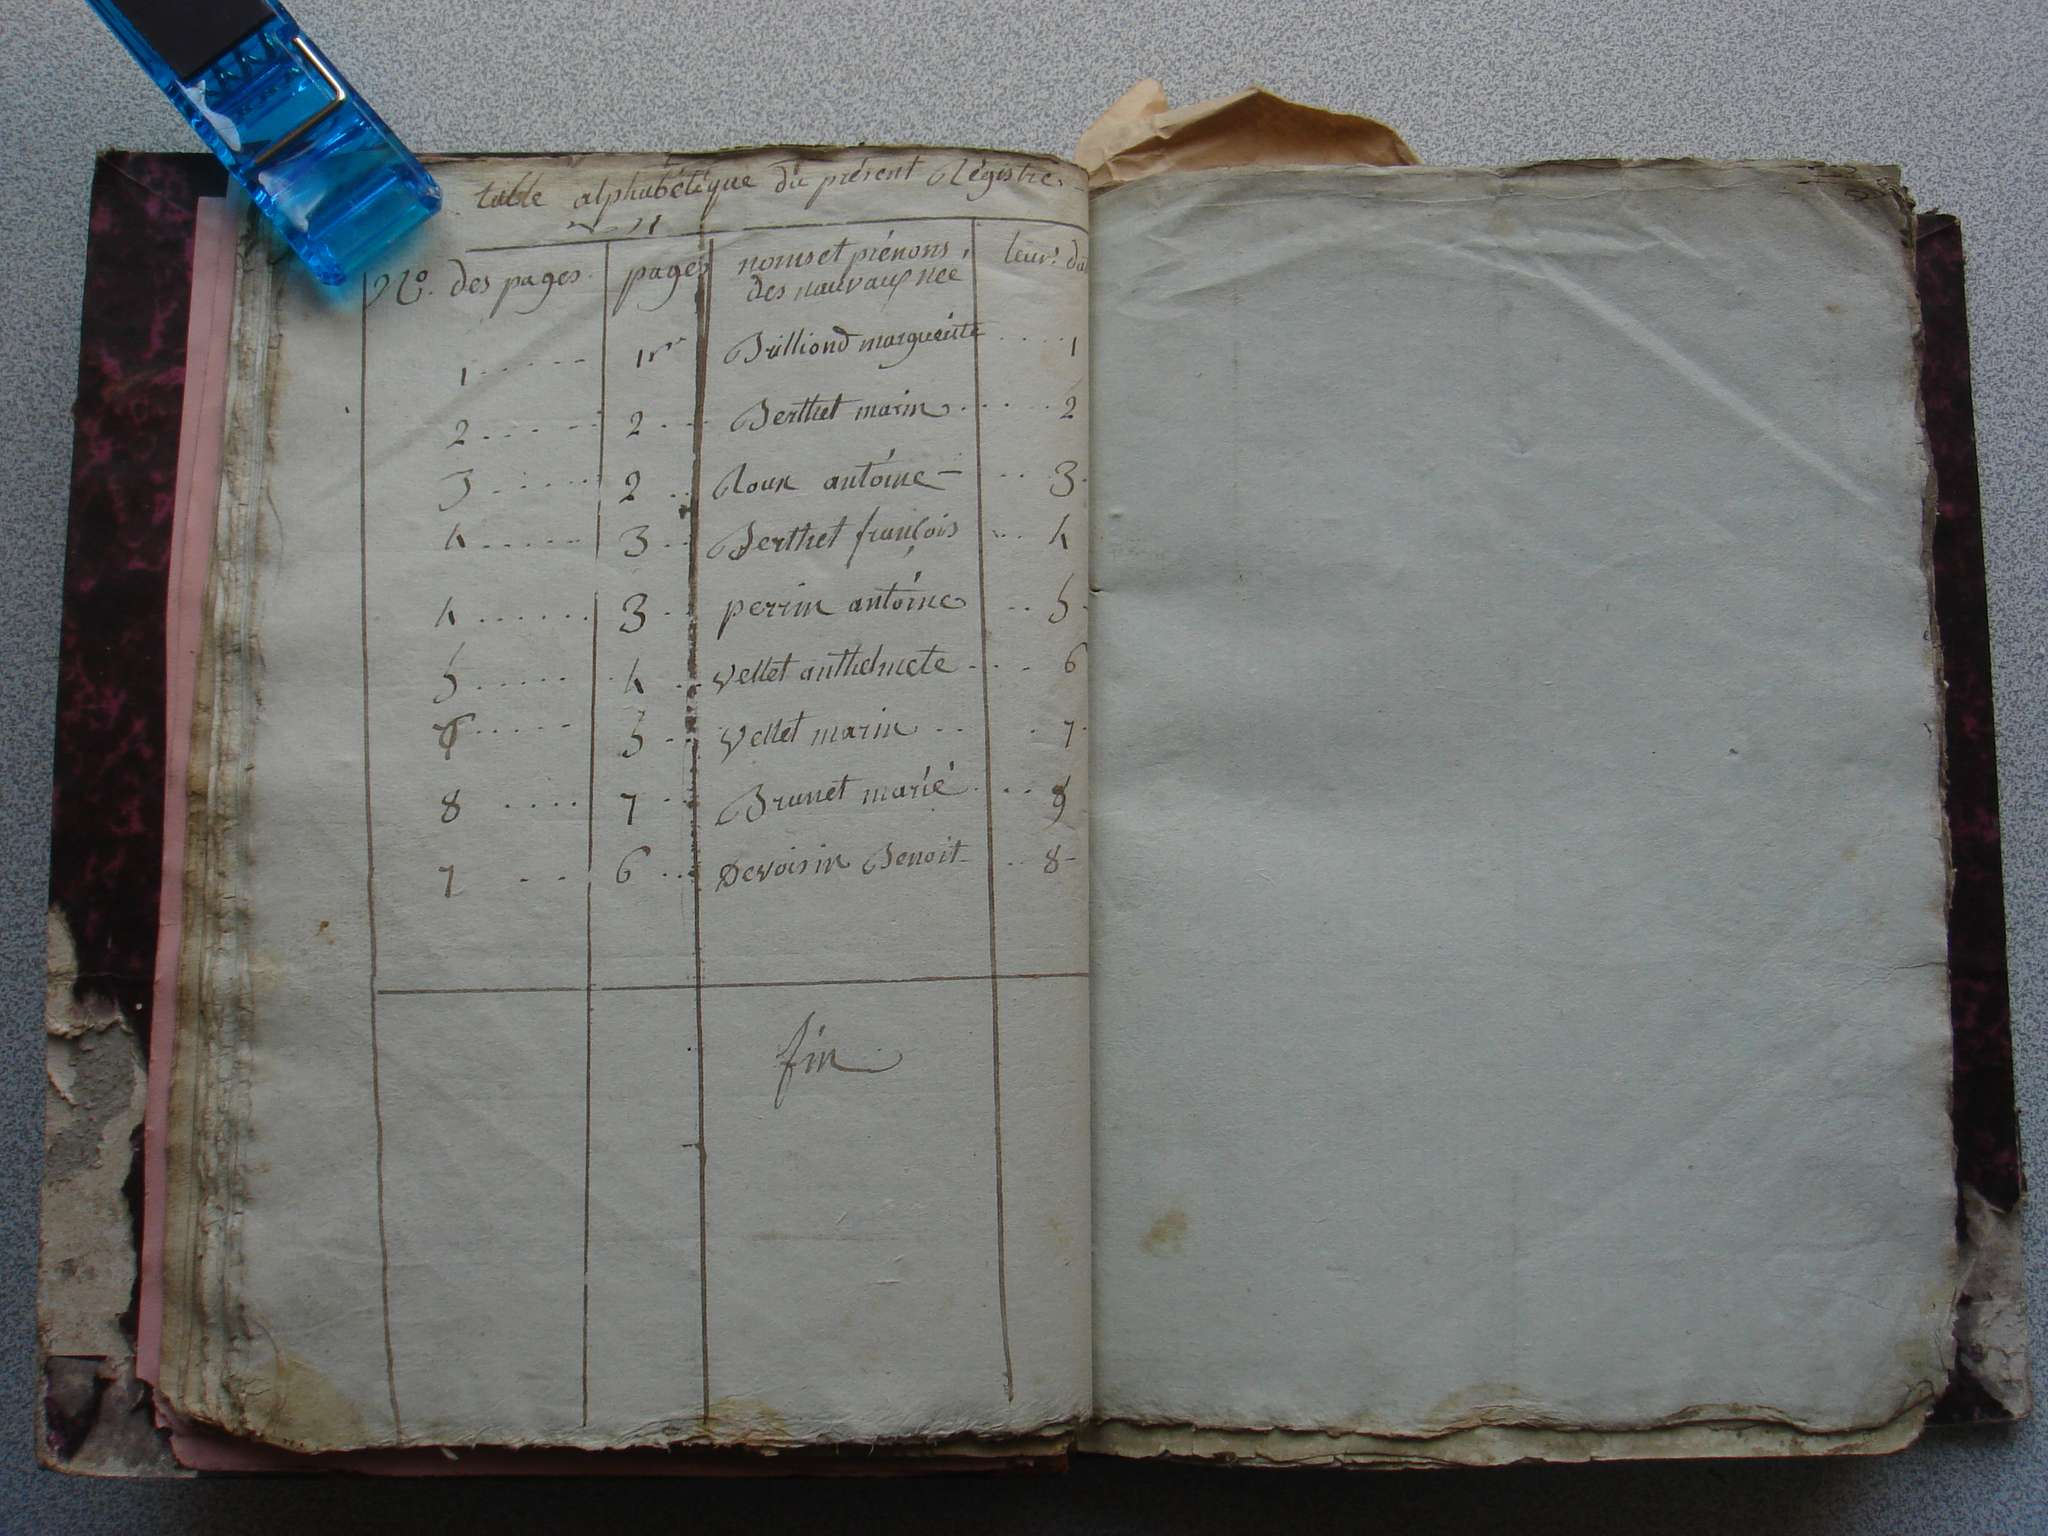 table alphabétique du présent Régistre.
No. des pages. pages noms et prénoms, leurs
des nauvaux née
1 1re marguerite 1
2 2 Berthet marin 2
3 2 Roux antoine 3
4 3 Berthet françois 4
4 3 perrin antoine 5
5 4 vellet anthelmete 6
5 vellet marin 7
8 7 Brunet marie 9
7 6 Devoisin Benoit 8
fin